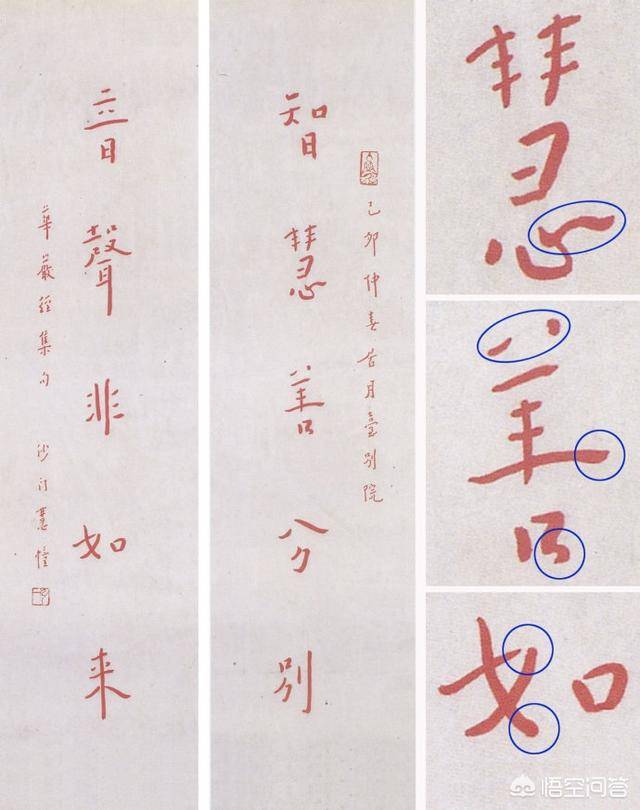 己卯仲春居月臺別院
智慧善分別
音聲非如来
華嚴經集句
沙門慧
慧
善
如
悟空问答